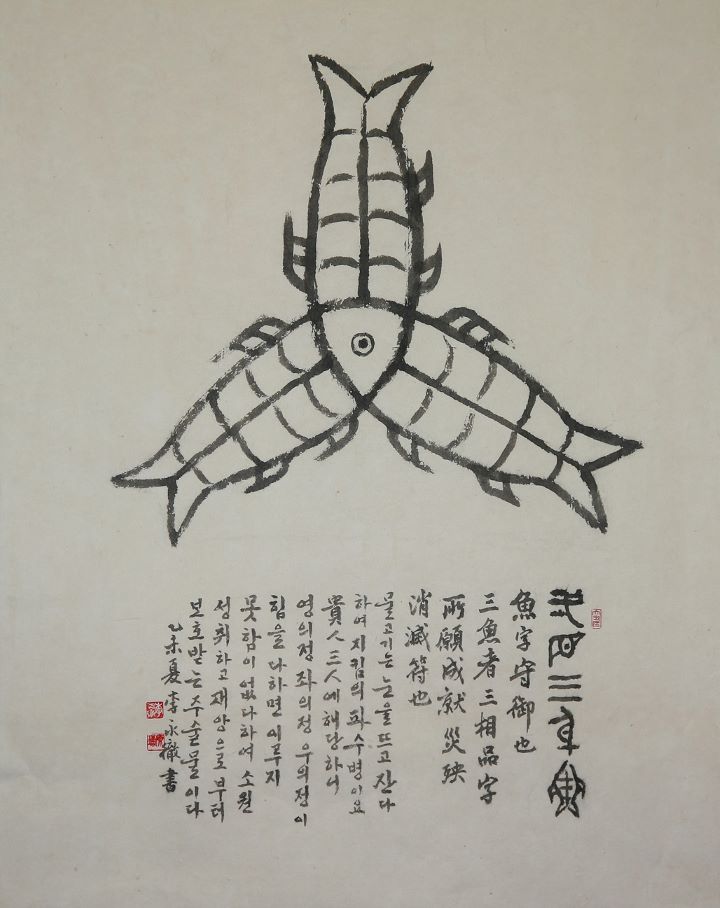 目三魚
魚字守御也
三魚者三相品字
所願成就 災殃
消滅符也
물고기는 눈을 뜨고 잔다
하여 지킴의 파수병이요
貴人 三人에 해당하니
영의정 좌의정 우의정이
힘을 다하면 이루지
못함이 없다하여 소원
성취하고 재앙으로부터
보호받는 주술물이다
乙未夏 李永徹 書